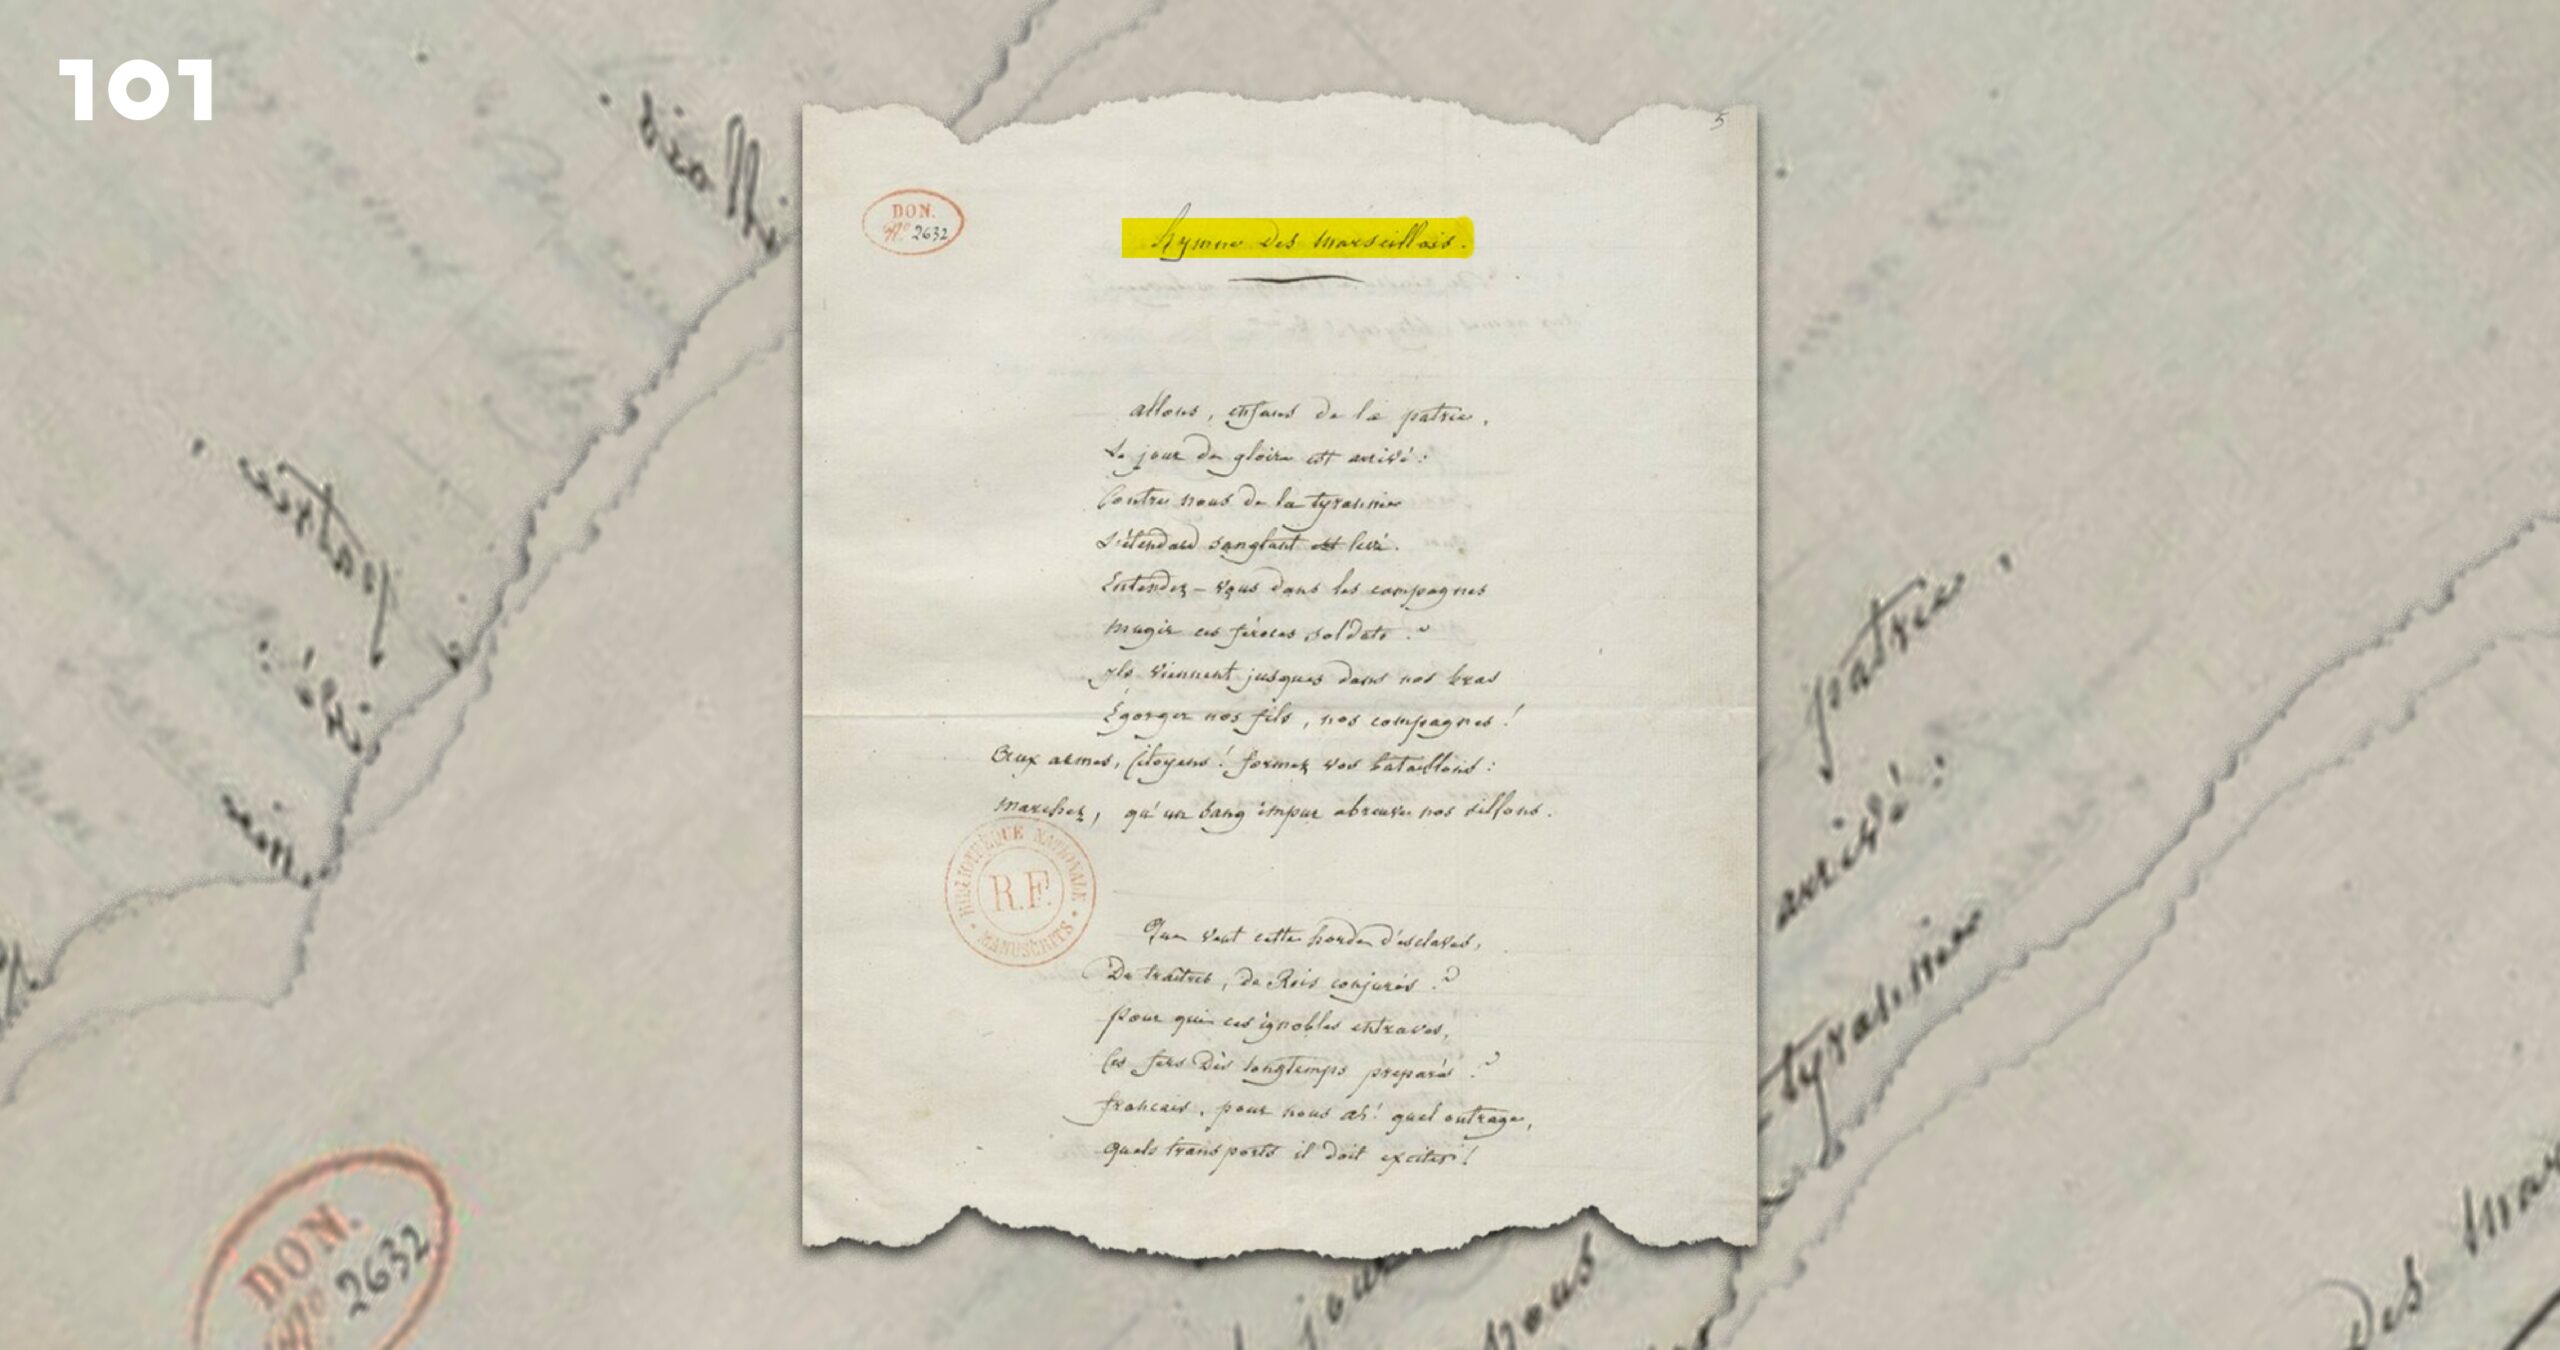 101
5
DON.
No 2632
hymne des marseillois.
allons, enfans de la patrie,
Le jour de gloire est arrivé:
Contre nous de la tyrannie
L'étendard sanglant est levé.
Entendez-vous dans les campagnes
mugir ces féroces soldats?
Ils viennent jusques dans nos bras
Égorger nos fils, nos compagnes!
Aux armes, Citoyens! formez vos bataillons:
marchez, qu'un sang impur abreuve nos sillons.
BIBLIOTHÈQUE NATIONALE
R.F.
MANUSCRITS
Que veut cette horde d'esclaves,
De traîtres, de Rois conjurés?
pour qui ces ignobles entraves,
Ces fers dès longtemps préparés?
français, pour nous ah! quel outrage,
quels transports il doit exciter!
patrie,
arrivé:
tyrannie
DON.
No 2632
jour
nous
des mar